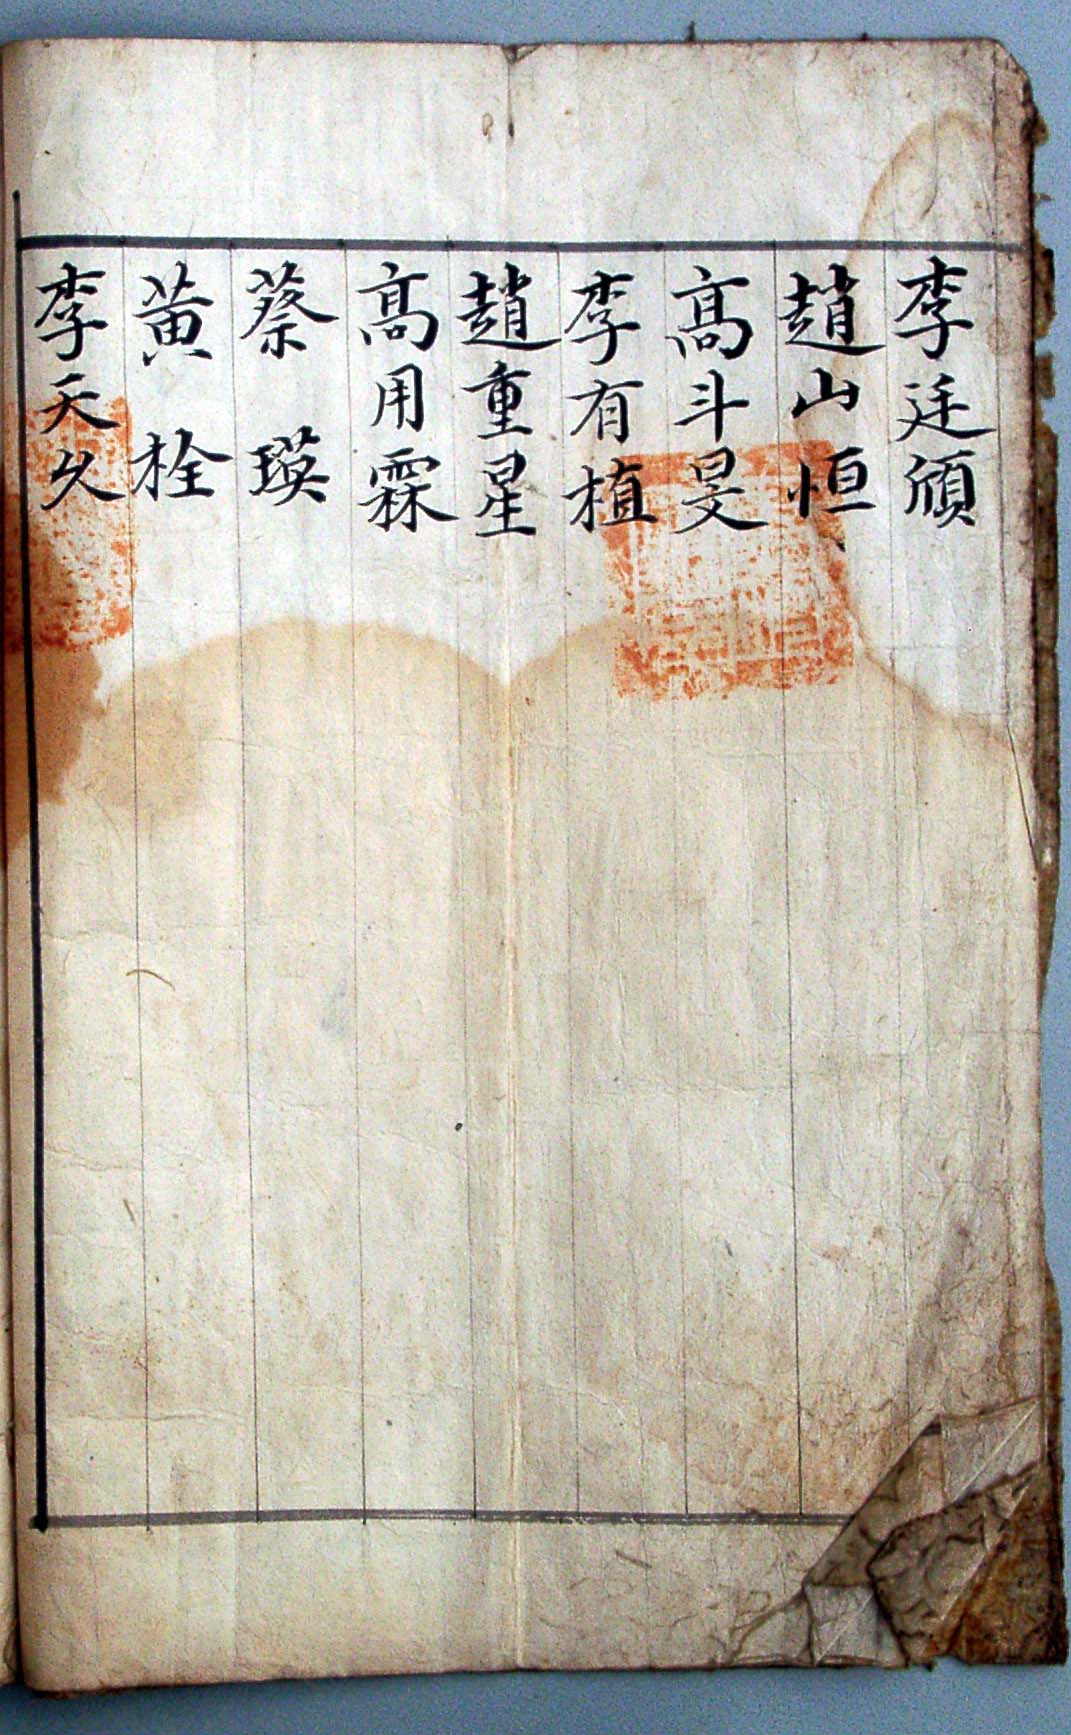 李廷頎
趙山恒
高斗旻
李有植
趙重星
高用霖
蔡瑛
黃栓
李天久